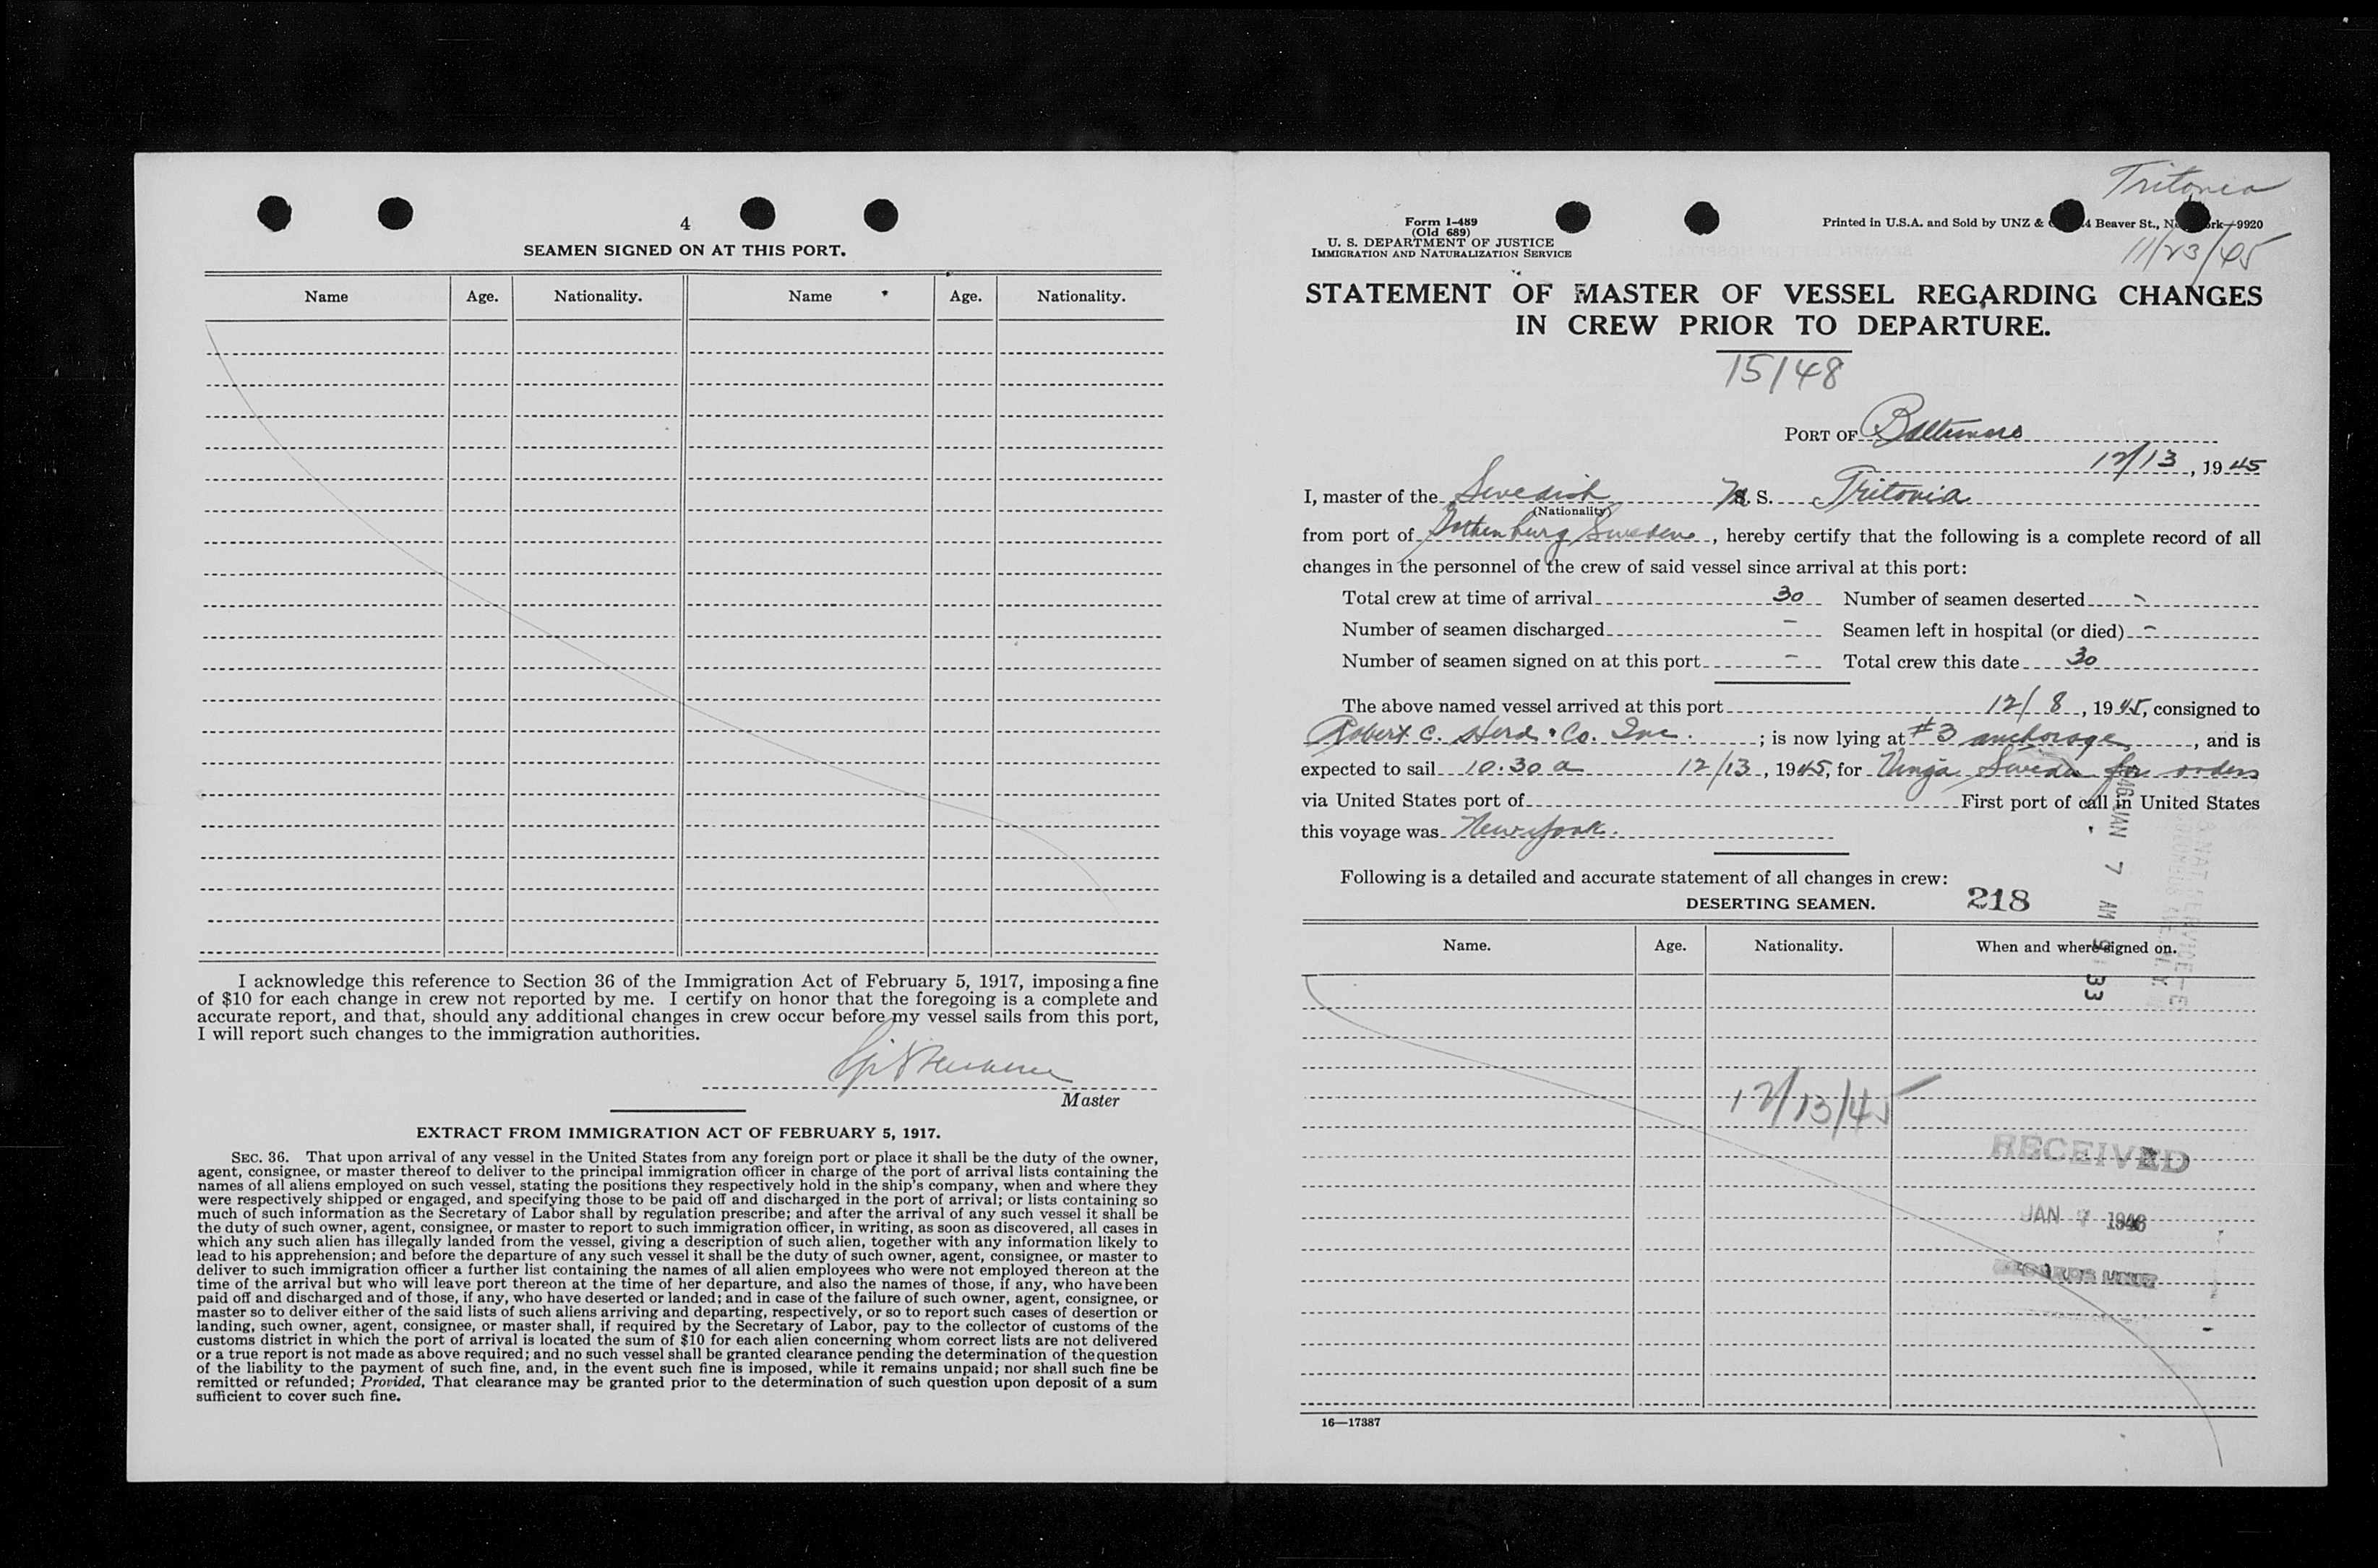 4
SEAMEN SIGNED ON AT THIS PORT.
Name Age. Nationality. Name Age. Nationality.
I acknowledge this reference to Section 36 of the Immigration Act of February 5, 1917, imposing a fine
of $10 for each change in crew not reported by me. I certify on honor that the foregoing is a complete and
accurate report, and that, should any additional changes in crew occur before my vessel sails from this port,
I will report such changes to the immigration authorities.
Master
EXTRACT FROM IMMIGRATION ACT OF FEBRUARY 5, 1917.
SEC. 36. That upon arrival of any vessel in the United States from any foreign port or place it shall be the duty of the owner,
agent, consignee, or master thereof to deliver to the principal immigration officer in charge of the port of arrival lists containing the
names of all aliens employed on such vessel, stating the positions they respectively hold in the ship's company, when and where they
were respectively shipped or engaged, and specifying those to be paid off and discharged in the port of arrival; or lists containing so
much of such information as the Secretary of Labor shall by regulation prescribe; and after the arrival of any such vessel it shall be
the duty of such owner, agent, consignee, or master to report to such immigration officer, in writing, as soon as discovered, all cases in
which any such alien has illegally landed from the vessel, giving a description of such alien, together with any information likely to
lead to his apprehension; and before the departure of any such vessel it shall be the duty of such owner, agent, consignee, or master to
deliver to such immigration officer a further list containing the names of all alien employees who were not employed thereon at the
time of the arrival but who will leave port thereon at the time of her departure, and also the names of those, if any, who have been
paid off and discharged and of those, if any, who have deserted or landed; and in case of the failure of such owner, agent, consignee, or
master so to deliver either of the said lists of such aliens arriving and departing, respectively, or so to report such cases of desertion or
landing, such owner, agent, consignee, or master shall, if required by the Secretary of Labor, pay to the collector of customs of the
customs district in which the port of arrival is located the sum of $10 for each alien concerning whom correct lists are not delivered
or a true report is not made as above required; and no such vessel shall be granted clearance pending the determination of the question
of the liability to the payment of such fine, and, in the event such fine is imposed, while it remains unpaid; nor shall such fine be
remitted or refunded; Provided, That clearance may be granted prior to the determination of such question upon deposit of a sum
sufficient to cover such fine.
Tritonia
Form I-489
(Old 689)
U. S. DEPARTMENT OF JUSTICE
IMMIGRATION AND NATURALIZATION SERVICE
Printed in U.S.A. and Sold by UNZ & 4 Beaver St., N rk—9920
11/23/45
STATEMENT OF MASTER OF VESSEL REGARDING CHANGES
IN CREW PRIOR TO DEPARTURE.
15/48
PORT OF Baltimore
12/13, 1945
I, master of the Swedish M S. Tritonia
(Nationality)
from port of Gothenburg Sweden, hereby certify that the following is a complete record of all
changes in the personnel of the crew of said vessel since arrival at this port:
Total crew at time of arrival 30 Number of seamen deserted -
Number of seamen discharged - Seamen left in hospital (or died) -
Number of seamen signed on at this port - Total crew this date 30
The above named vessel arrived at this port 12/8, 1945, consigned to
Robert C. Herd & Co. Inc. ; is now lying at #3 anchorage, and is
expected to sail 10:30 a 12/13, 1945, for Vinga Sweden for orders
via United States port of First port of call in United States
this voyage was New York.
Following is a detailed and accurate statement of all changes in crew:
DESERTING SEAMEN. 218
1946 JAN 7 AM 9 33
Name. Age. Nationality. When and where signed on.
12/13/45
RECEIVED
JAN 7 1946
RECORDS UNIT
16—17387